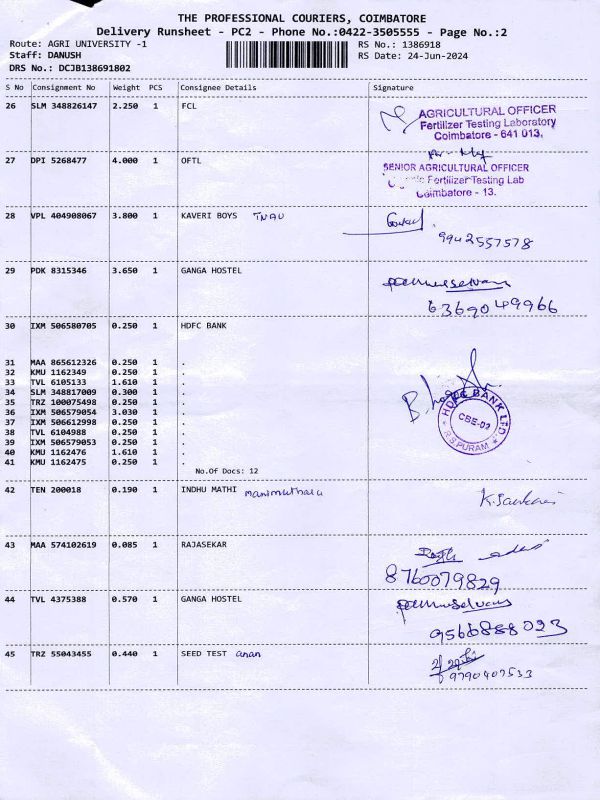 THE PROFESSIONAL COURIERS, COIMBATORE
Delivery Runsheet - PC2 - Phone No.:0422-3505555 - Page No.:2
Route: AGRI UNIVERSITY -1 RS No.: 1386918
Staff: DANUSH RS Date: 24-Jun-2024
DRS No.: DCJB138691802
S No Consignment No Weight PCS Consignee Details Signature
26 SLM 348826147 2.250 1 FCL
AGRICULTURAL OFFICER
Fertilizer Testing Laboratory
Coimbatore - 641 013.
27 DPI 5268477 4.000 1 OFTL
SENIOR AGRICULTURAL OFFICER
Fertilizer Testing Lab
Coimbatore - 13.
28 VPL 404908067 3.800 1 KAVERI BOYS TNAU
9942557578
29 PDK 8315346 3.650 1 GANGA HOSTEL
6369049966
30 IXM 506580705 0.250 1 HDFC BANK
31 MAA 865612326 0.250 1 .
32 KMU 1162349 0.250 1 .
33 TVL 6105133 1.610 1 .
34 SLM 348817009 0.300 1 .
35 TRZ 100075498 0.250 1 .
36 IXM 506579054 3.030 1 .
37 IXM 506612998 0.250 1 .
38 TVL 6104988 0.250 1 .
39 IXM 506579053 0.250 1 .
40 KMU 1162476 1.610 1 .
41 KMU 1162475 0.250 1 .
HDFC BANK LTD
CBE-02
R.S.PURAM
No.Of Docs: 12
42 TEN 200018 0.190 1 INDHU MATHI manimuthalu
K.Sankari
43 MAA 574102619 0.085 1 RAJASEKAR
8760079829
44 TVL 4375388 0.570 1 GANGA HOSTEL
9566888023
45 TRZ 55043455 0.440 1 SEED TEST anan
9790407533